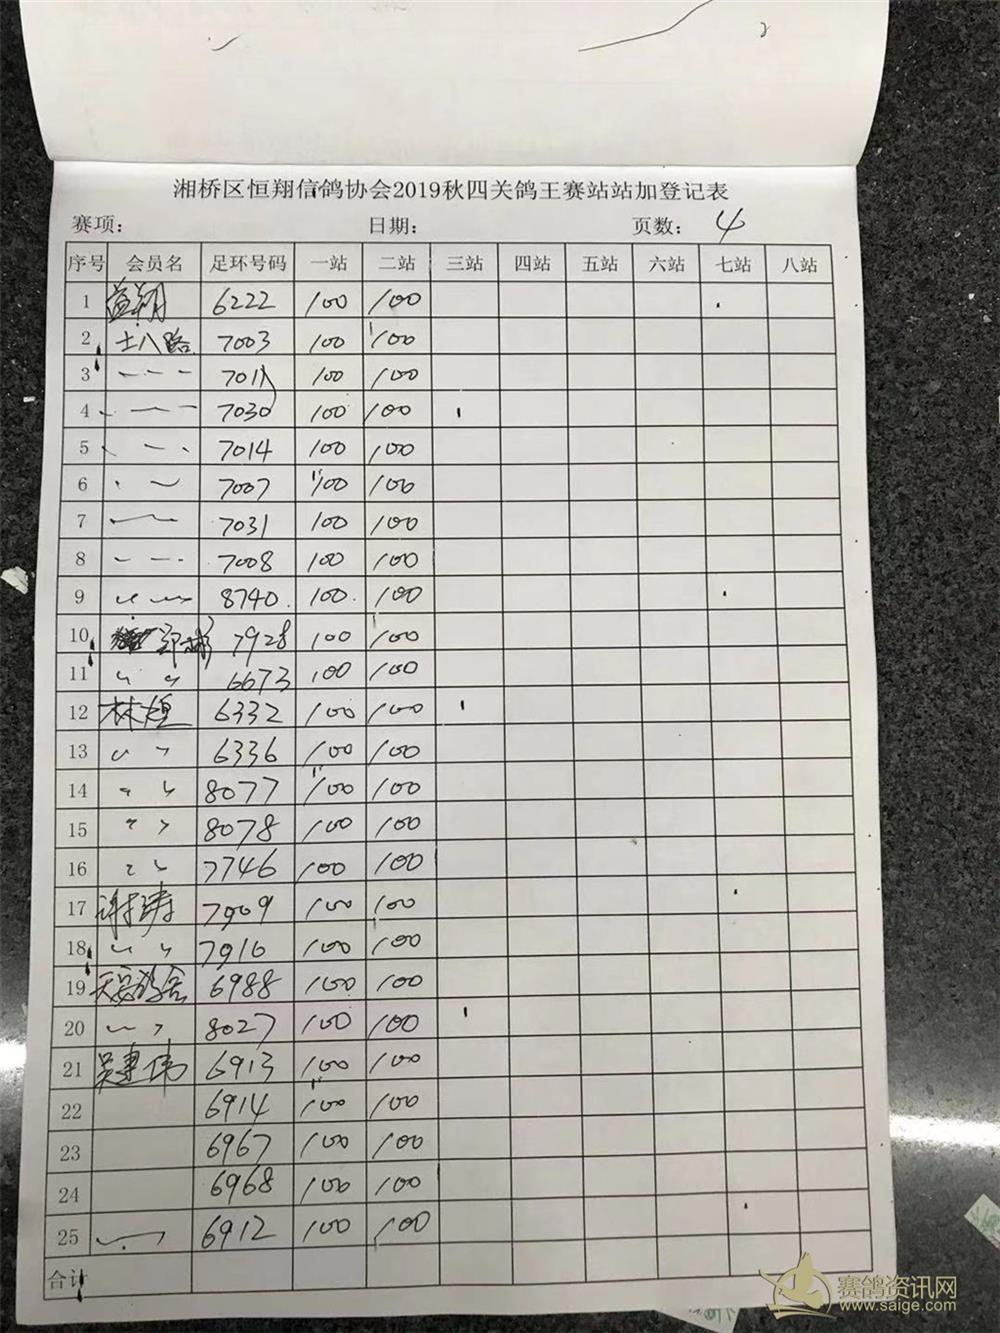 湘桥区恒翔信鸽协会2019秋四关鸽王赛站站加登记表
赛项: 日期: 页数: 4
序号 会员名 足环号码 一站 二站 三站 四站 五站 六站 七站 八站
1 益翔 6222 100 100
2 土八路 7003 100 100
3 7011 100 100
4 7030 100 100
5 7014 100 100
6 7007 100 100
7 7031 100 100
8 7008 100 100
9 8740 100 100
10 郑彬 7928 100 100
11 6673 100 100
12 林煌 6332 100 100
13 6336 100 100
14 8077 100 100
15 8078 100 100
16 7746 100 100
17 谢涛 7909 100 100
18 7916 100 100
19 鸽舍 6988 100 100
20 8027 100 100
21 吴惠伟 6913 100 100
22 6914 100 100
23 6967 100 100
24 6968 100 100
25 6912 100 100
合计
赛鸽资讯网
www.saige.com